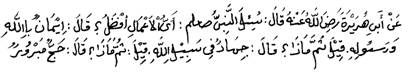 عَنْ أَبِي هُرَيْرَةَ رَضِيَ اللّٰهُ عَنْهُ قَالَ : سُئِلَ النَّبِيُّ صلعم : أَيُّ الْأَعْمَالِ أَفْضَلُ ؟ قَالَ : إِيْمَانٌ بِاللّٰهِ
وَرَسُولِهِ. قِيْلَ ثُمَّ مَاذَا ؟ قَالَ : جِهَادٌ فِي سَبِيْلِ اللّٰهِ. قِيْلَ : ثُمَّ مَاذَا ؟ قَالَ : حَجٌّ مَبْرُوْرٌ